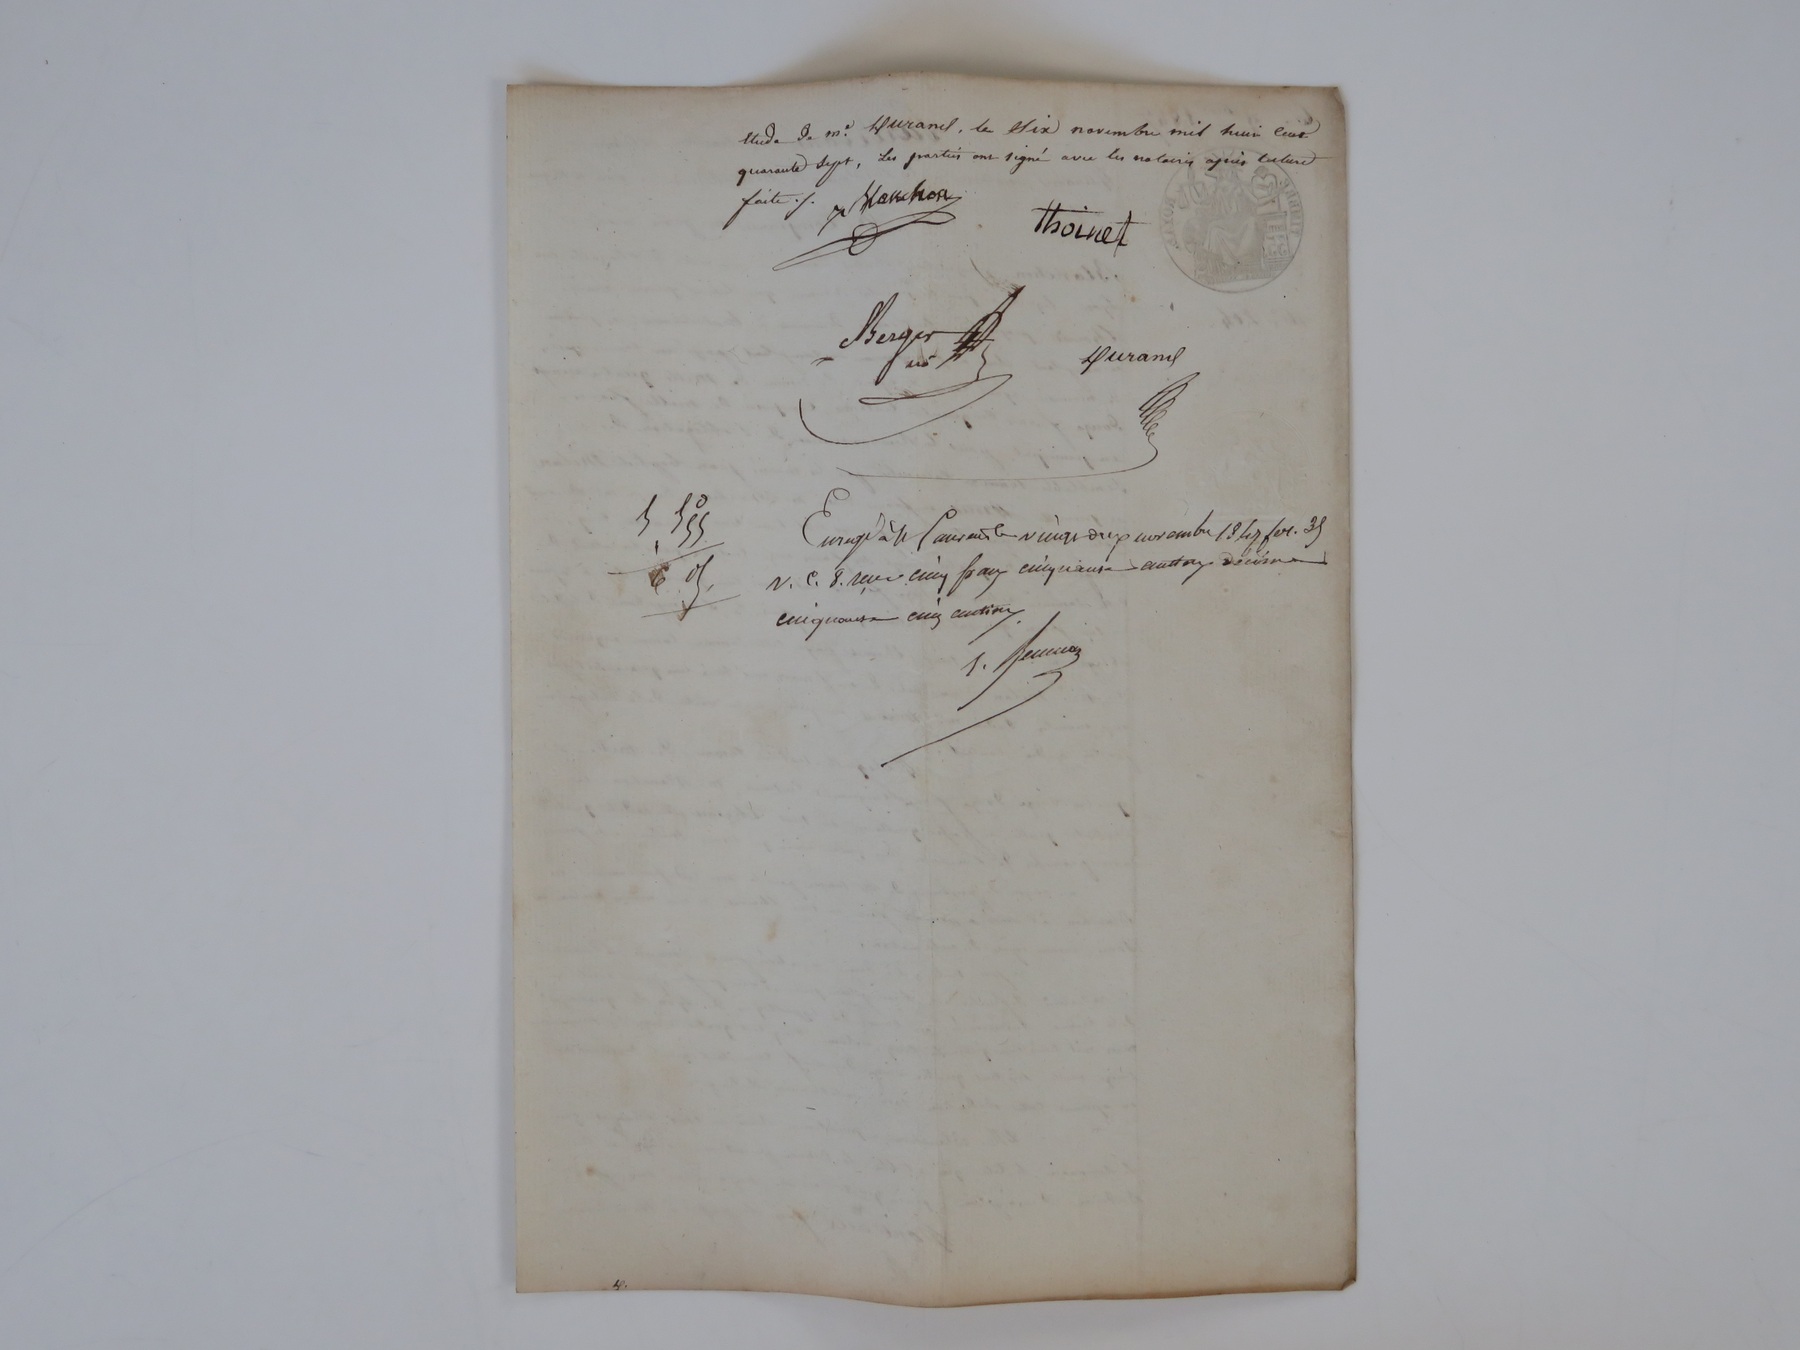 Etude de me Durand, le Dix novembre mil huit cent
quarante Sept, Les parties ont signé avec les notaires après lecture
faite ./.
Marchon
Thoinet
Berger
no
Durand
5 50
55
6 05
Enregé à St Laurent le vingt deux novembre 1847 fol. 35
v. c. 8. reçu cinq francs cinquante centimes décime
cinquante cinq centimes.